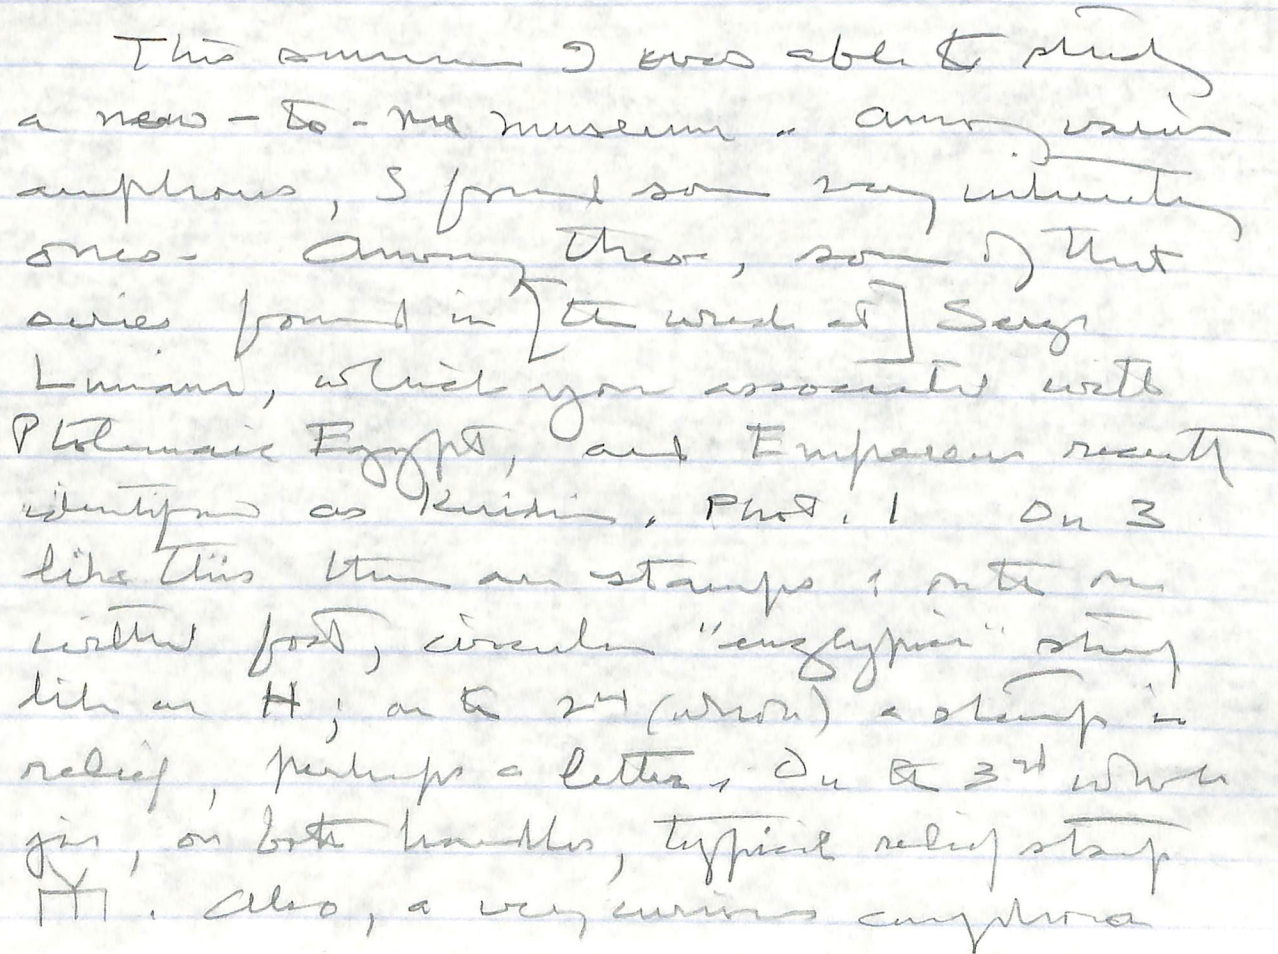 This summer I was able to study
a new-to-me museum. Among various
amphoras, I found some very interesting
ones. Among these, some of that
series found in [the wreck at] Serçe
Limanı, which you associated with
Ptolemaic Egypt, and Empereur recently
identified as Knidian. Phot. 1 On 3
like this there are stamps: on the one
without foot, circular "englyphic" stamp
like an H; on the 2nd (whole) a stamp in
relief, perhaps a letter. On the 3rd whole
jar, on both handles, typical relief stamp
. Also, a very curious amphora